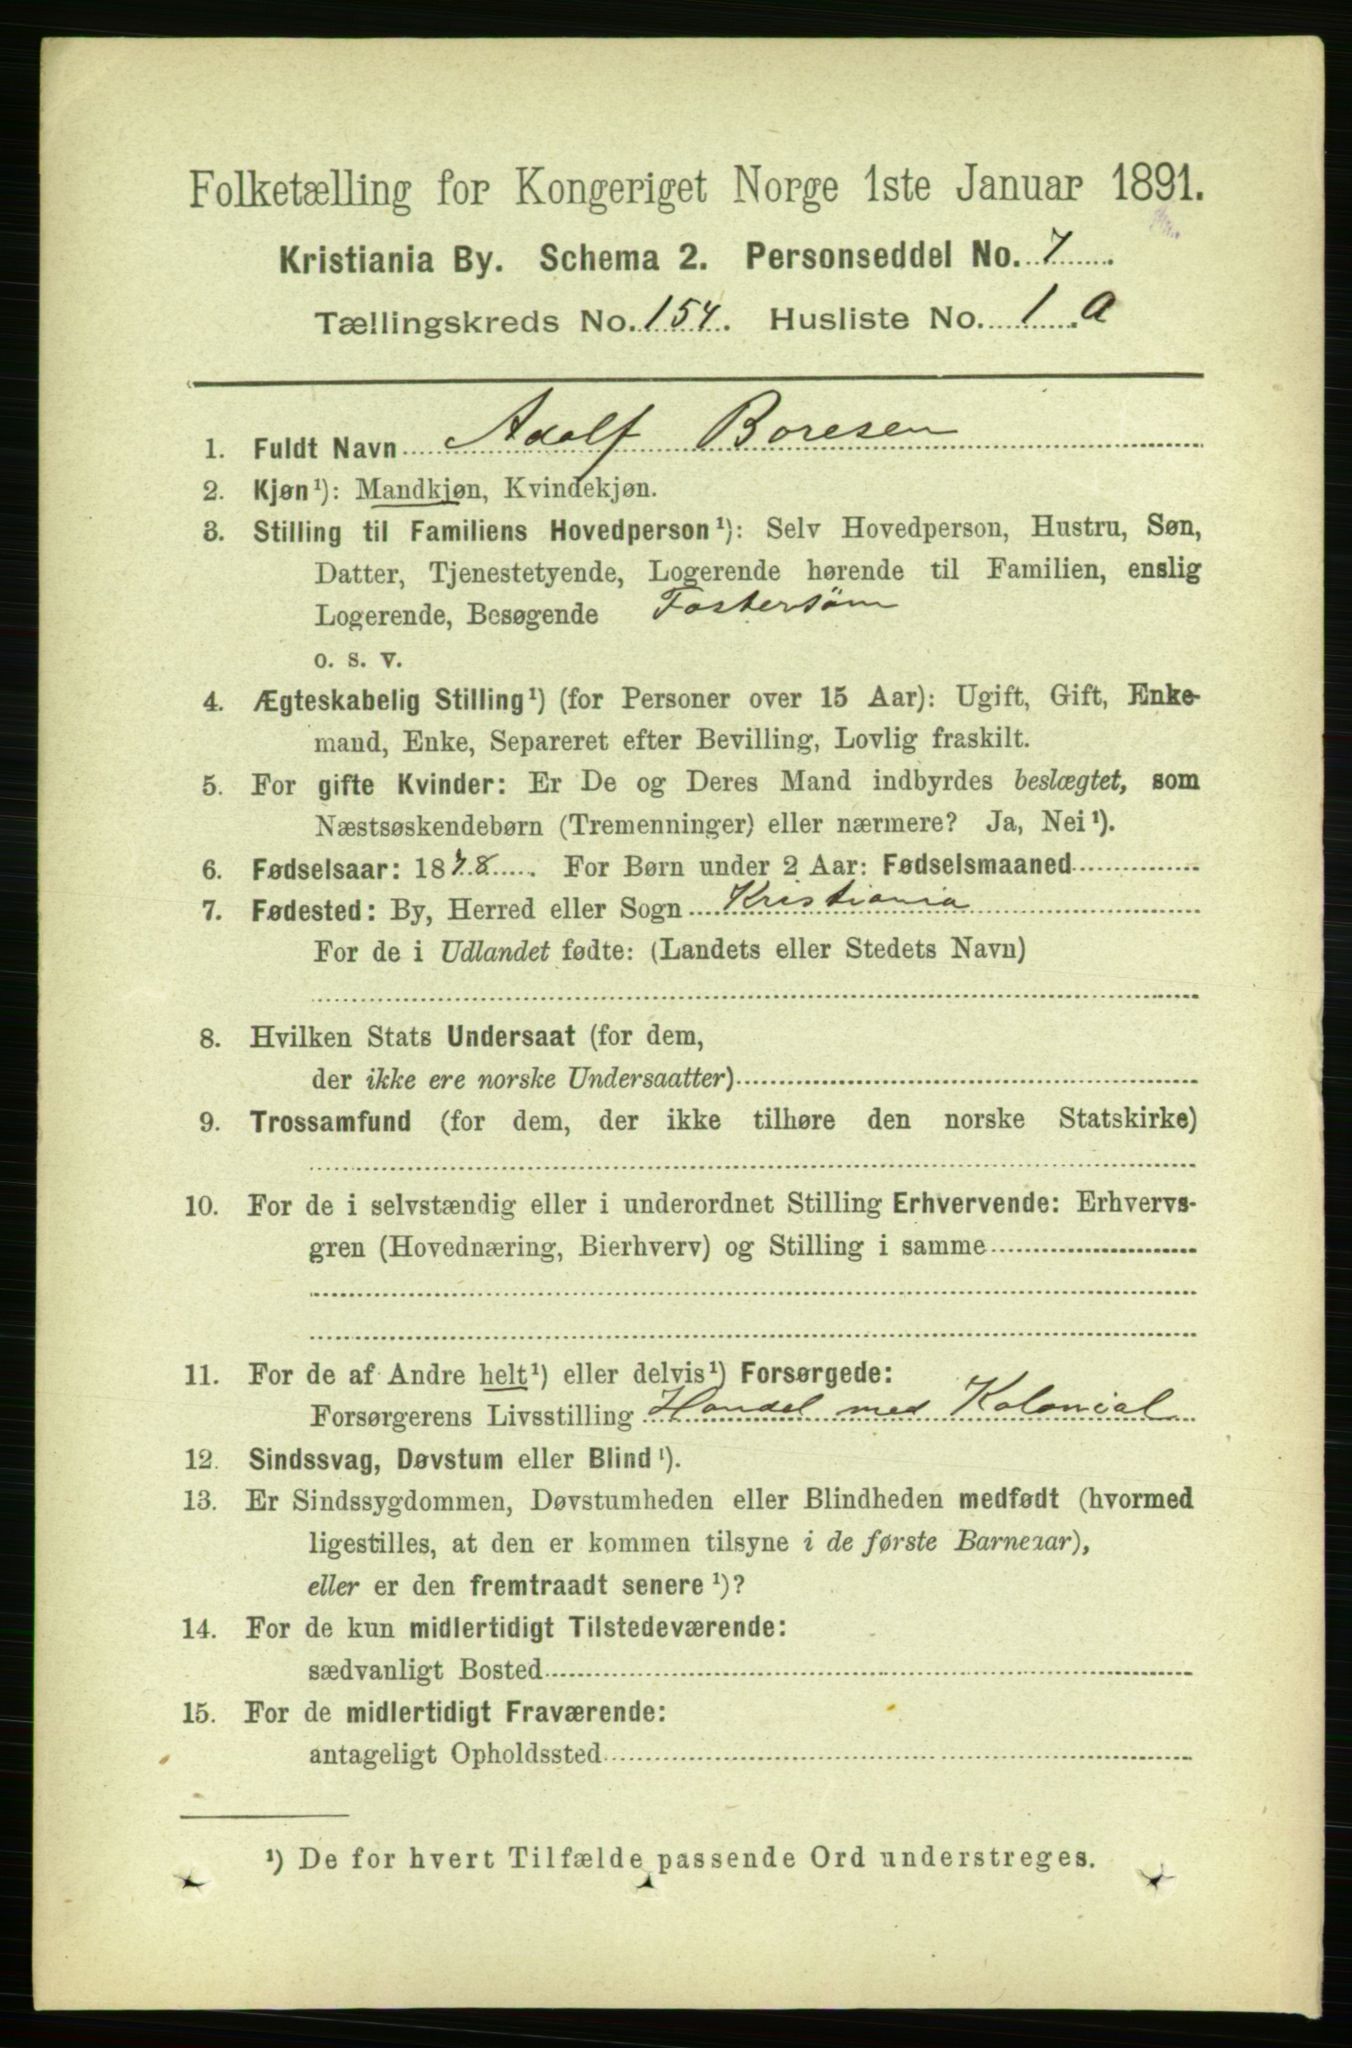 Folketælling for Kongeriget Norge 1ste Januar 1891.
Kristiania By. Schema 2. Personseddel No. 7
Tællingskreds No. 154. Husliste No. 1.a
1. Fuldt Navn Adolf Boresen
2. Kjøn¹): Mandkjøn, Kvindekjøn.
3. Stilling til Familiens Hovedperson¹): Selv Hovedperson, Hustru, Søn,
Datter, Tjenestetyende, Logerende hørende til Familien, enslig
Logerende, Besøgende Fostersøn
o. s. v.
4. Ægteskabelig Stilling¹) (for Personer over 15 Aar): Ugift, Gift, Enke-
mand, Enke, Separeret efter Bevilling, Lovlig fraskilt.
5. For gifte Kvinder: Er De og Deres Mand indbyrdes beslægtet, som
Næstsøskendebørn (Tremenninger) eller nærmere? Ja, Nei¹).
6. Fødselsaar: 1878. For Børn under 2 Aar: Fødselsmaaned
7. Fødested: By, Herred eller Sogn Kristiania
For de i Udlandet fødte: (Landets eller Stedets Navn)
8. Hvilken Stats Undersaat (for dem,
der ikke ere norske Undersaatter)
9. Trossamfund (for dem, der ikke tilhøre den norske Statskirke)
10. For de i selvstændig eller i underordnet Stilling Erhvervende: Erhvervs-
gren (Hovednæring, Bierhverv) og Stilling i samme
11. For de af Andre helt¹) eller delvis¹) Forsørgede:
Forsørgerens Livsstilling Handel med Kolonial
12. Sindssvag, Døvstum eller Blind¹).
13. Er Sindssygdommen, Døvstumheden eller Blindheden medfødt (hvormed
ligestilles, at den er kommen tilsyne i de første Barneaar),
eller er den fremtraadt senere¹)?
14. For de kun midlertidigt Tilstedeværende:
sædvanligt Bosted
15. For de midlertidigt Fraværende:
antageligt Opholdssted
¹) De for hvert Tilfælde passende Ord understreges.